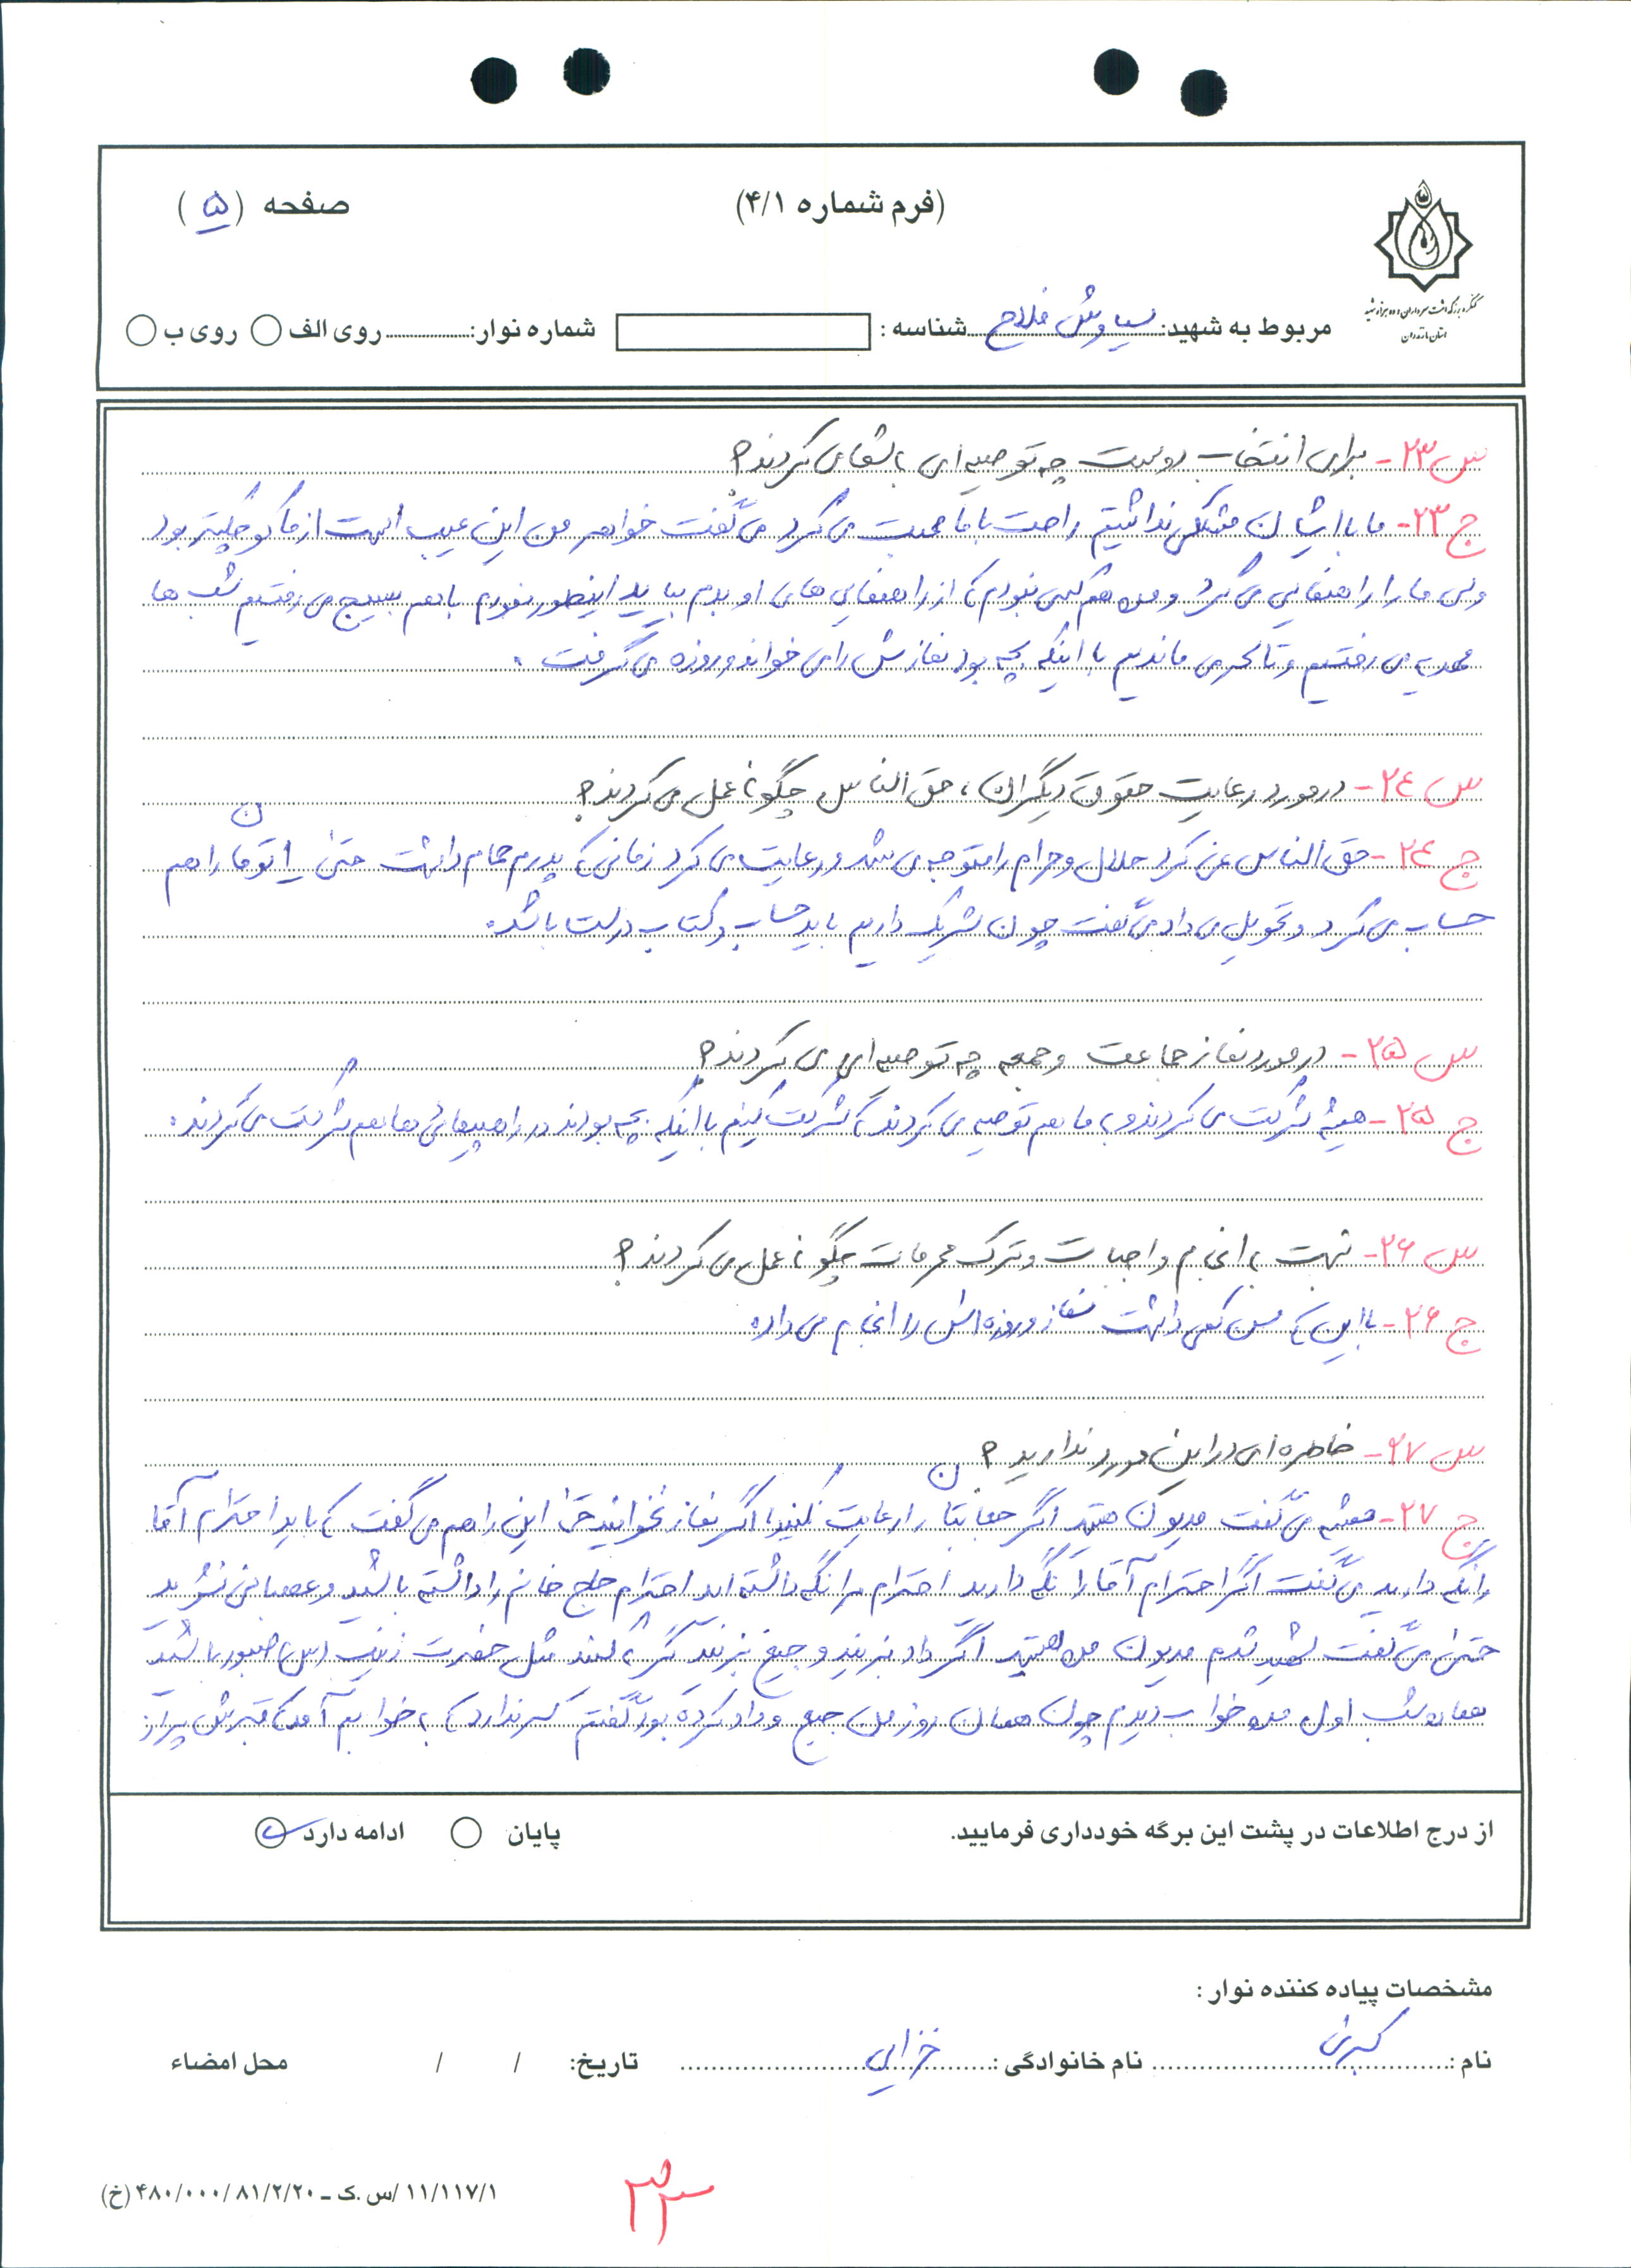 (فرم شماره ۴/۱)
صفحه (۵)
کنگره بزرگداشت سرداران و ده هزار شهید
استان مازندران
مربوط به شهید: سیاوش فلاح شناسه : شماره نوار: روی الف روی ب
س ۲۳- برای انتخاب دوست چه توصیه‌ای به شما می کردند؟
ج ۲۳- ما با ایشان مشکلی نداشتیم راحت با ما صحبت می کرد می گفت خواهر من این عیب است از ما کوچکتر بود
ولی ما را راهنمایی می کرد و من هم کسی نبودم که از راهنمایی های او بدم بیاید اینطور نبودم باهم بسیج می رفتیم شب ها
مهدیه می رفتیم و تا سحر می ماندیم با اینکه بچه بود نمازش را می خواند و روزه می گرفت .
س ۲۴- در مورد رعایت حقوق دیگران ، حق الناس چگونه عمل می کردند؟
ج ۲۴- حق الناس نمی کرد حلال و حرام را متوجه می شد و رعایت می کرد زمانی که پدرم حمام داشت حتی یا توما را هم
حساب می کرد و تحویل می داد می گفت چون شریک داریم باید حساب و کتاب درست باشد.
س ۲۵- در مورد نماز جماعت و جمعه چه توصیه ای می کردند؟
ج ۲۵- همیشه شرکت می کردند و به ما هم توصیه می کردند که شرکت کنیم با اینکه بچه بودند در راهپیمائی ها هم شرکت می کردند.
س ۲۶- نسبت به انجام واجبات و ترک محرمات چگونه عمل می کردند؟
ج ۲۶- با این که سن کمی داشت نماز و روزه اش را انجام می داد.
س ۲۷- خاطره ای در این مورد ندارید؟
ج ۲۷- همیشه می گفت مدیون هستید اگر حجابتان را رعایت نکنید، اگر نماز نخوانید حتی این را هم می گفت که باید احترام آقا
را نگه دارید می گفت اگر احترام آقا را نگه دارید احترام مرا نگه داشته اید احترام حاج خانم را داشته باشید و عصبانی نشوید
حتی می گفت شهید شدم مدیون من هستید اگر داد بزنید و جیغ بزنید گریه کنید مثل حضرت زینب (س) صبور باشید
همان شب اول من خواب دیدم چون همان روز من جیغ و داد کرده بود گفتم سر ندارد که به خوابم آمد که قبرش پر از
از درج اطلاعات در پشت این برگه خودداری فرمایید.
پایان ادامه دارد
مشخصات پیاده کننده نوار :
نام : کبری نام خانوادگی : خزایی تاریخ: / / محل امضاء
۱۱/۱۱۷/۱ /س.ک ـ ۴۸۰/۰۰۰/۸۱/۲/۲۰ (خ)
۳۳